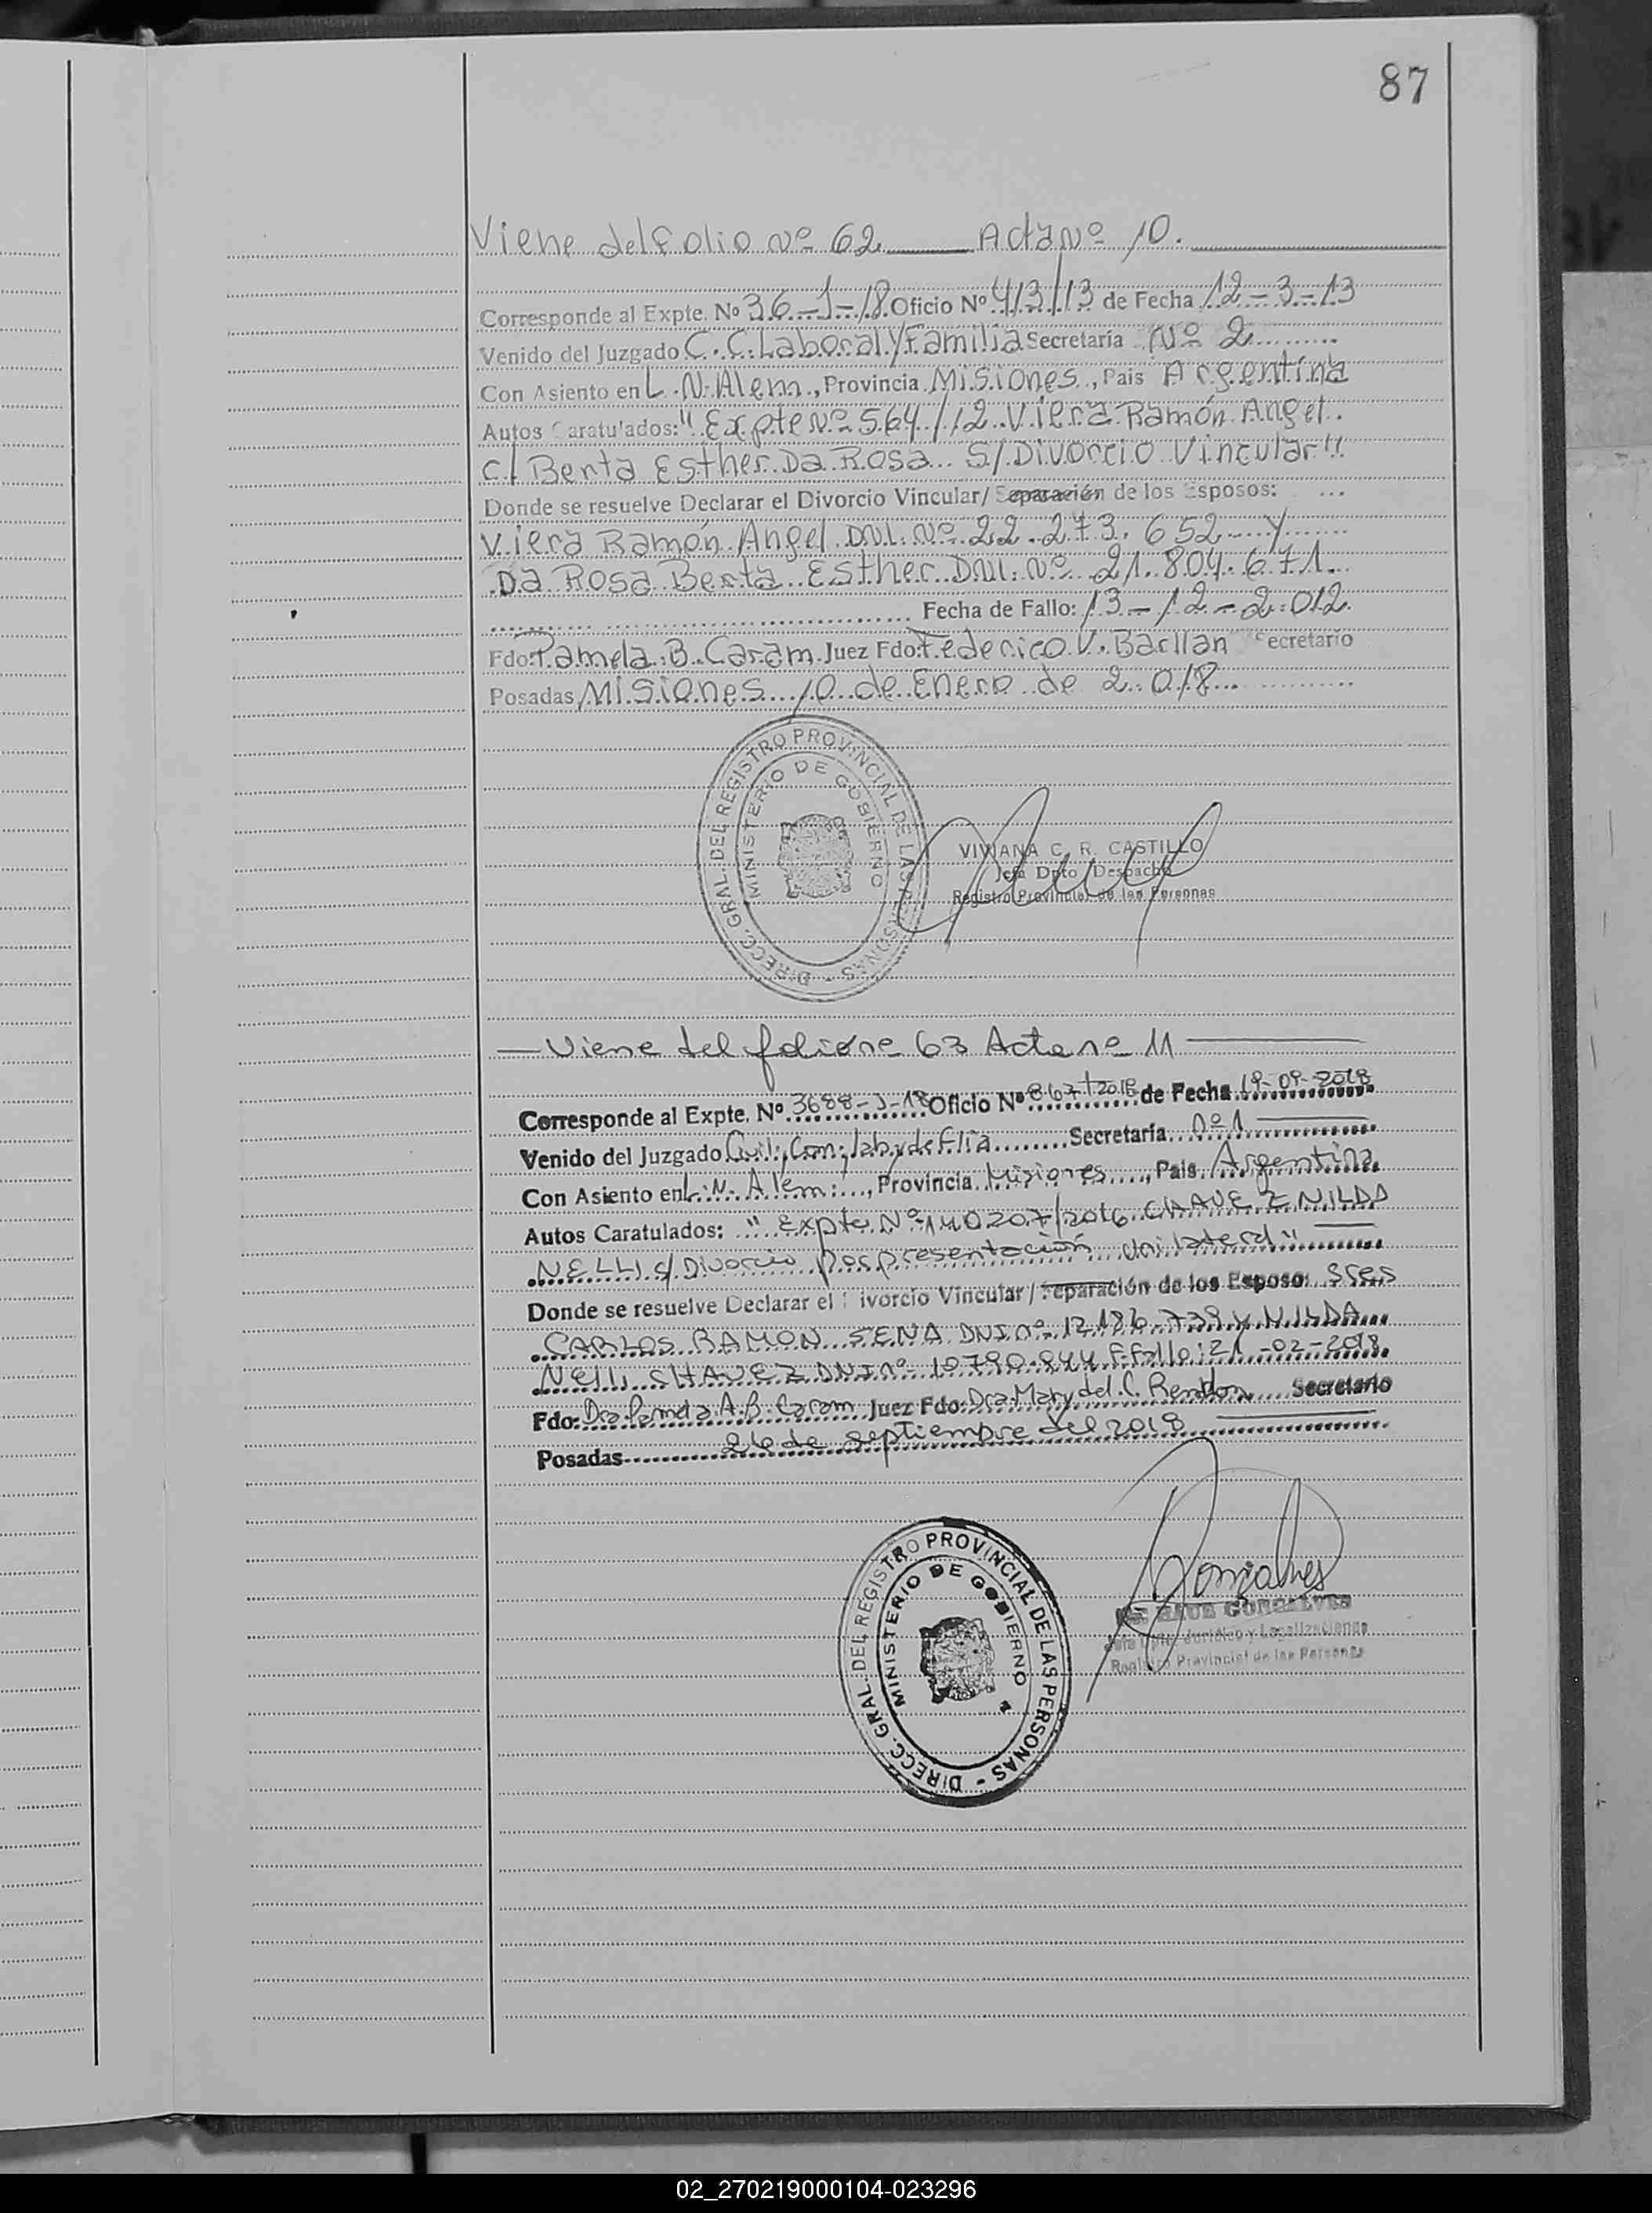 87
Viene del folio nº 62 Acta Nº 10.
Corresponde al Expte. Nº 36-J-18 Oficio Nº 413/13 de Fecha 12-3-13
Venido del Juzgado C.C. Laboral y Familia Secretaría Nº 2
Con Asiento en L.N. Alem, Provincia Misiones, Pais Argentina
Autos Caratulados: "Expte Nº 564/12 Viera Ramón Angel
c/ Berta Esther Da Rosa S/ Divorcio Vincular"
Donde se resuelve Declarar el Divorcio Vincular/ Separación de los Esposos:
Viera Ramón Angel DNI. Nº 22.273.652 y
Da Rosa Berta Esther DNI. Nº 21.804.671.
Fecha de Fallo: 13-12-2.012.
Fdo: Pamela B. Caram Juez Fdo: Federico V. Secretario
Posadas, Misiones 10 de Enero de 2.018
DIRECC. GRAL. DEL REGISTRO PROVINCIAL DE LAS PERSONAS -
MINISTERIO DE GOBIERNO
VIVIANA C. R. CASTILLO
Jefa Dpto Despacho
Registro Provincial de las Personas
Viene del folio nº 63 Acta nº 11
Corresponde al Expte. Nº 3688-J-18 Oficio Nº 867/2018 de Fecha 19-09-2018
Venido del Juzgado Civil, Com, lab y de flia Secretaría nº 1
Con Asiento en L.N. Alem, Provincia Misiones, Pais Argentina
Autos Caratulados: "Expte Nº 140207/2016 CHAVEZ NILDA
NELLI s/ Divorcio por presentación unilateral"
Donde se resuelve Declarar el Divorcio Vincular/ Separación de los Esposos Sres
CARLOS RAMON SENA DNI nº 12.186.739 y NILDA
NELLI CHAVEZ DNI nº 10790.844 F. Fallo: 21-02-2018
Fdo: Dra Pamela A.B. Caram Juez Fdo: Dra Mary del C. Secretario
Posadas 26 de septiembre del 2018
DIRECC. GRAL. DEL REGISTRO PROVINCIAL DE LAS PERSONAS -
MINISTERIO DE GOBIERNO
Gonçalves
GONCALVES
Jefa Dpto. Jurídico y Legalizaciones
Registro Provincial de las Personas
02_270219000104-023296